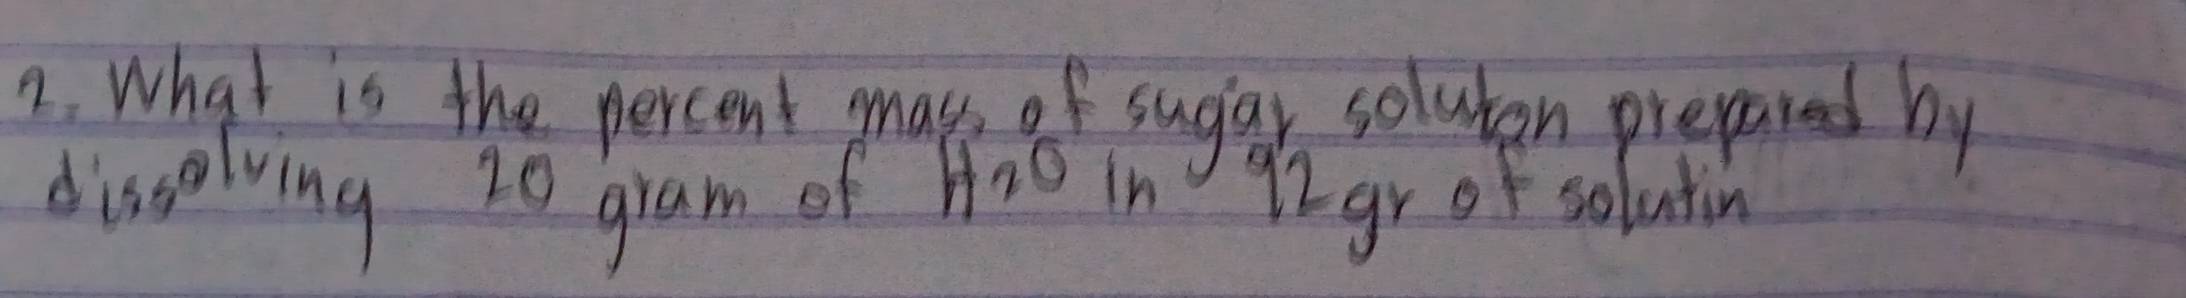 2. What is the percent mass of sugar soluton prepared by
dissolving 20 gram of H2O in 92 gr of solutin